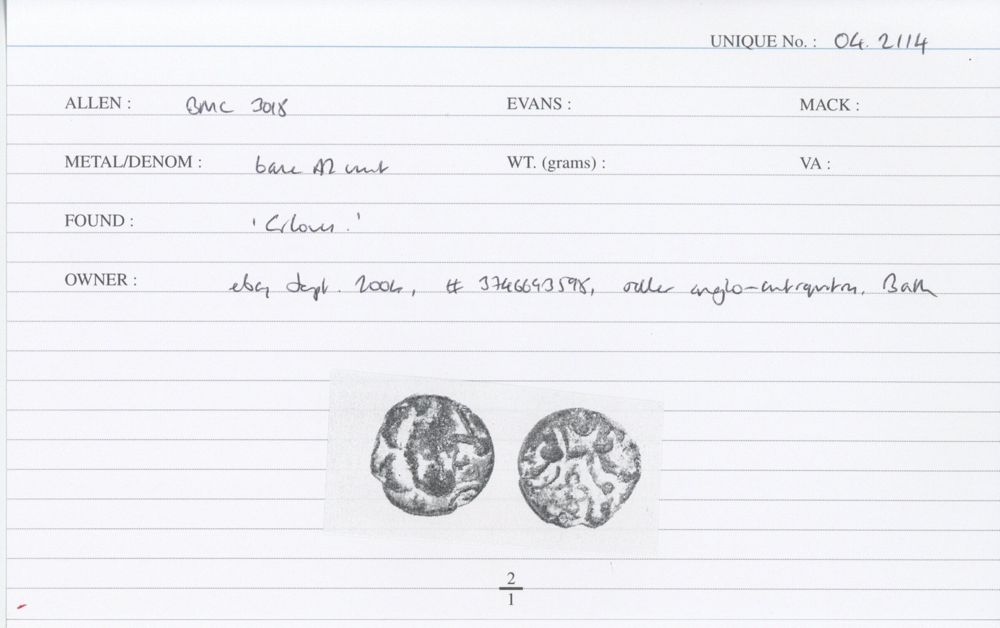 UNIQUE No. : 04. 2114
ALLEN : BMC 3018 EVANS : MACK :
METAL/DENOM : base AR unit WT. (grams) : VA :
FOUND :
OWNER : ebay Sept. 2004, # 3746693598, seller anglo-antiquities, Bath
2
1